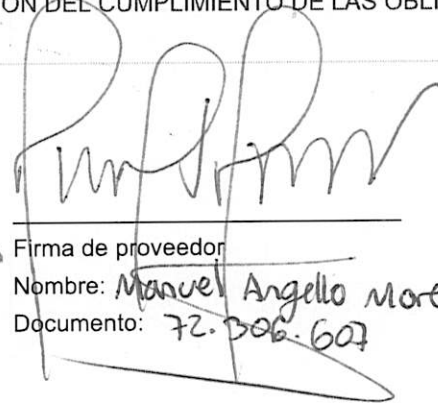 ÓN DEL CUMPLIMIENTO DE LAS OBLI
Firma de proveedor
Nombre: Manuel Angello More
Documento: 72.306.607